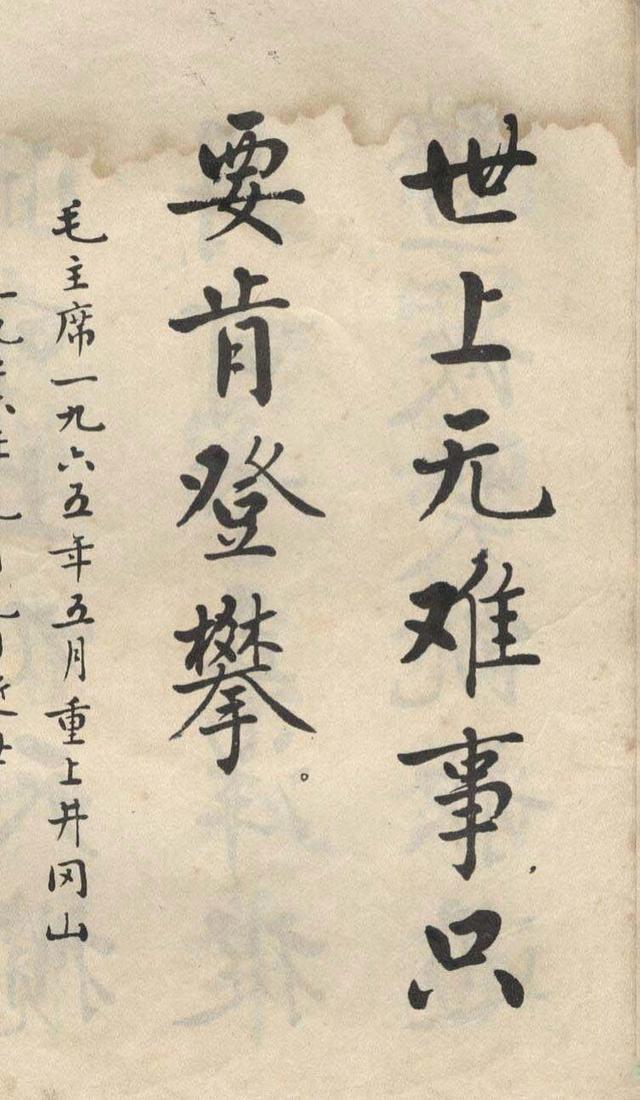 世上无难事，只
要肯登攀。
毛主席一九六五年五月重上井冈山